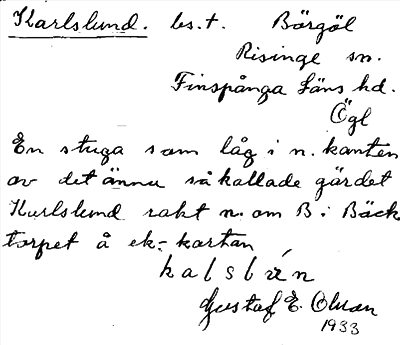 Karlslund. bs.t. Börgöl
Risinge sn.
Finspånga Läns hd.
Ögl
En stuga som låg i n. kanten
av det ännu så kallade gärdet
Kurlslund rakt n. om B i Bäck
torpet å ek-kartan
kalslún
Gustaf E.
1933